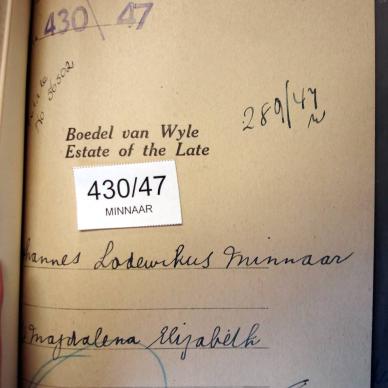 430/47
289/47
Boedel van Wyle
Estate of the Late
430/47
MINNAAR
hannes Lodewikus Minnaar
Magdalena Elizabeth